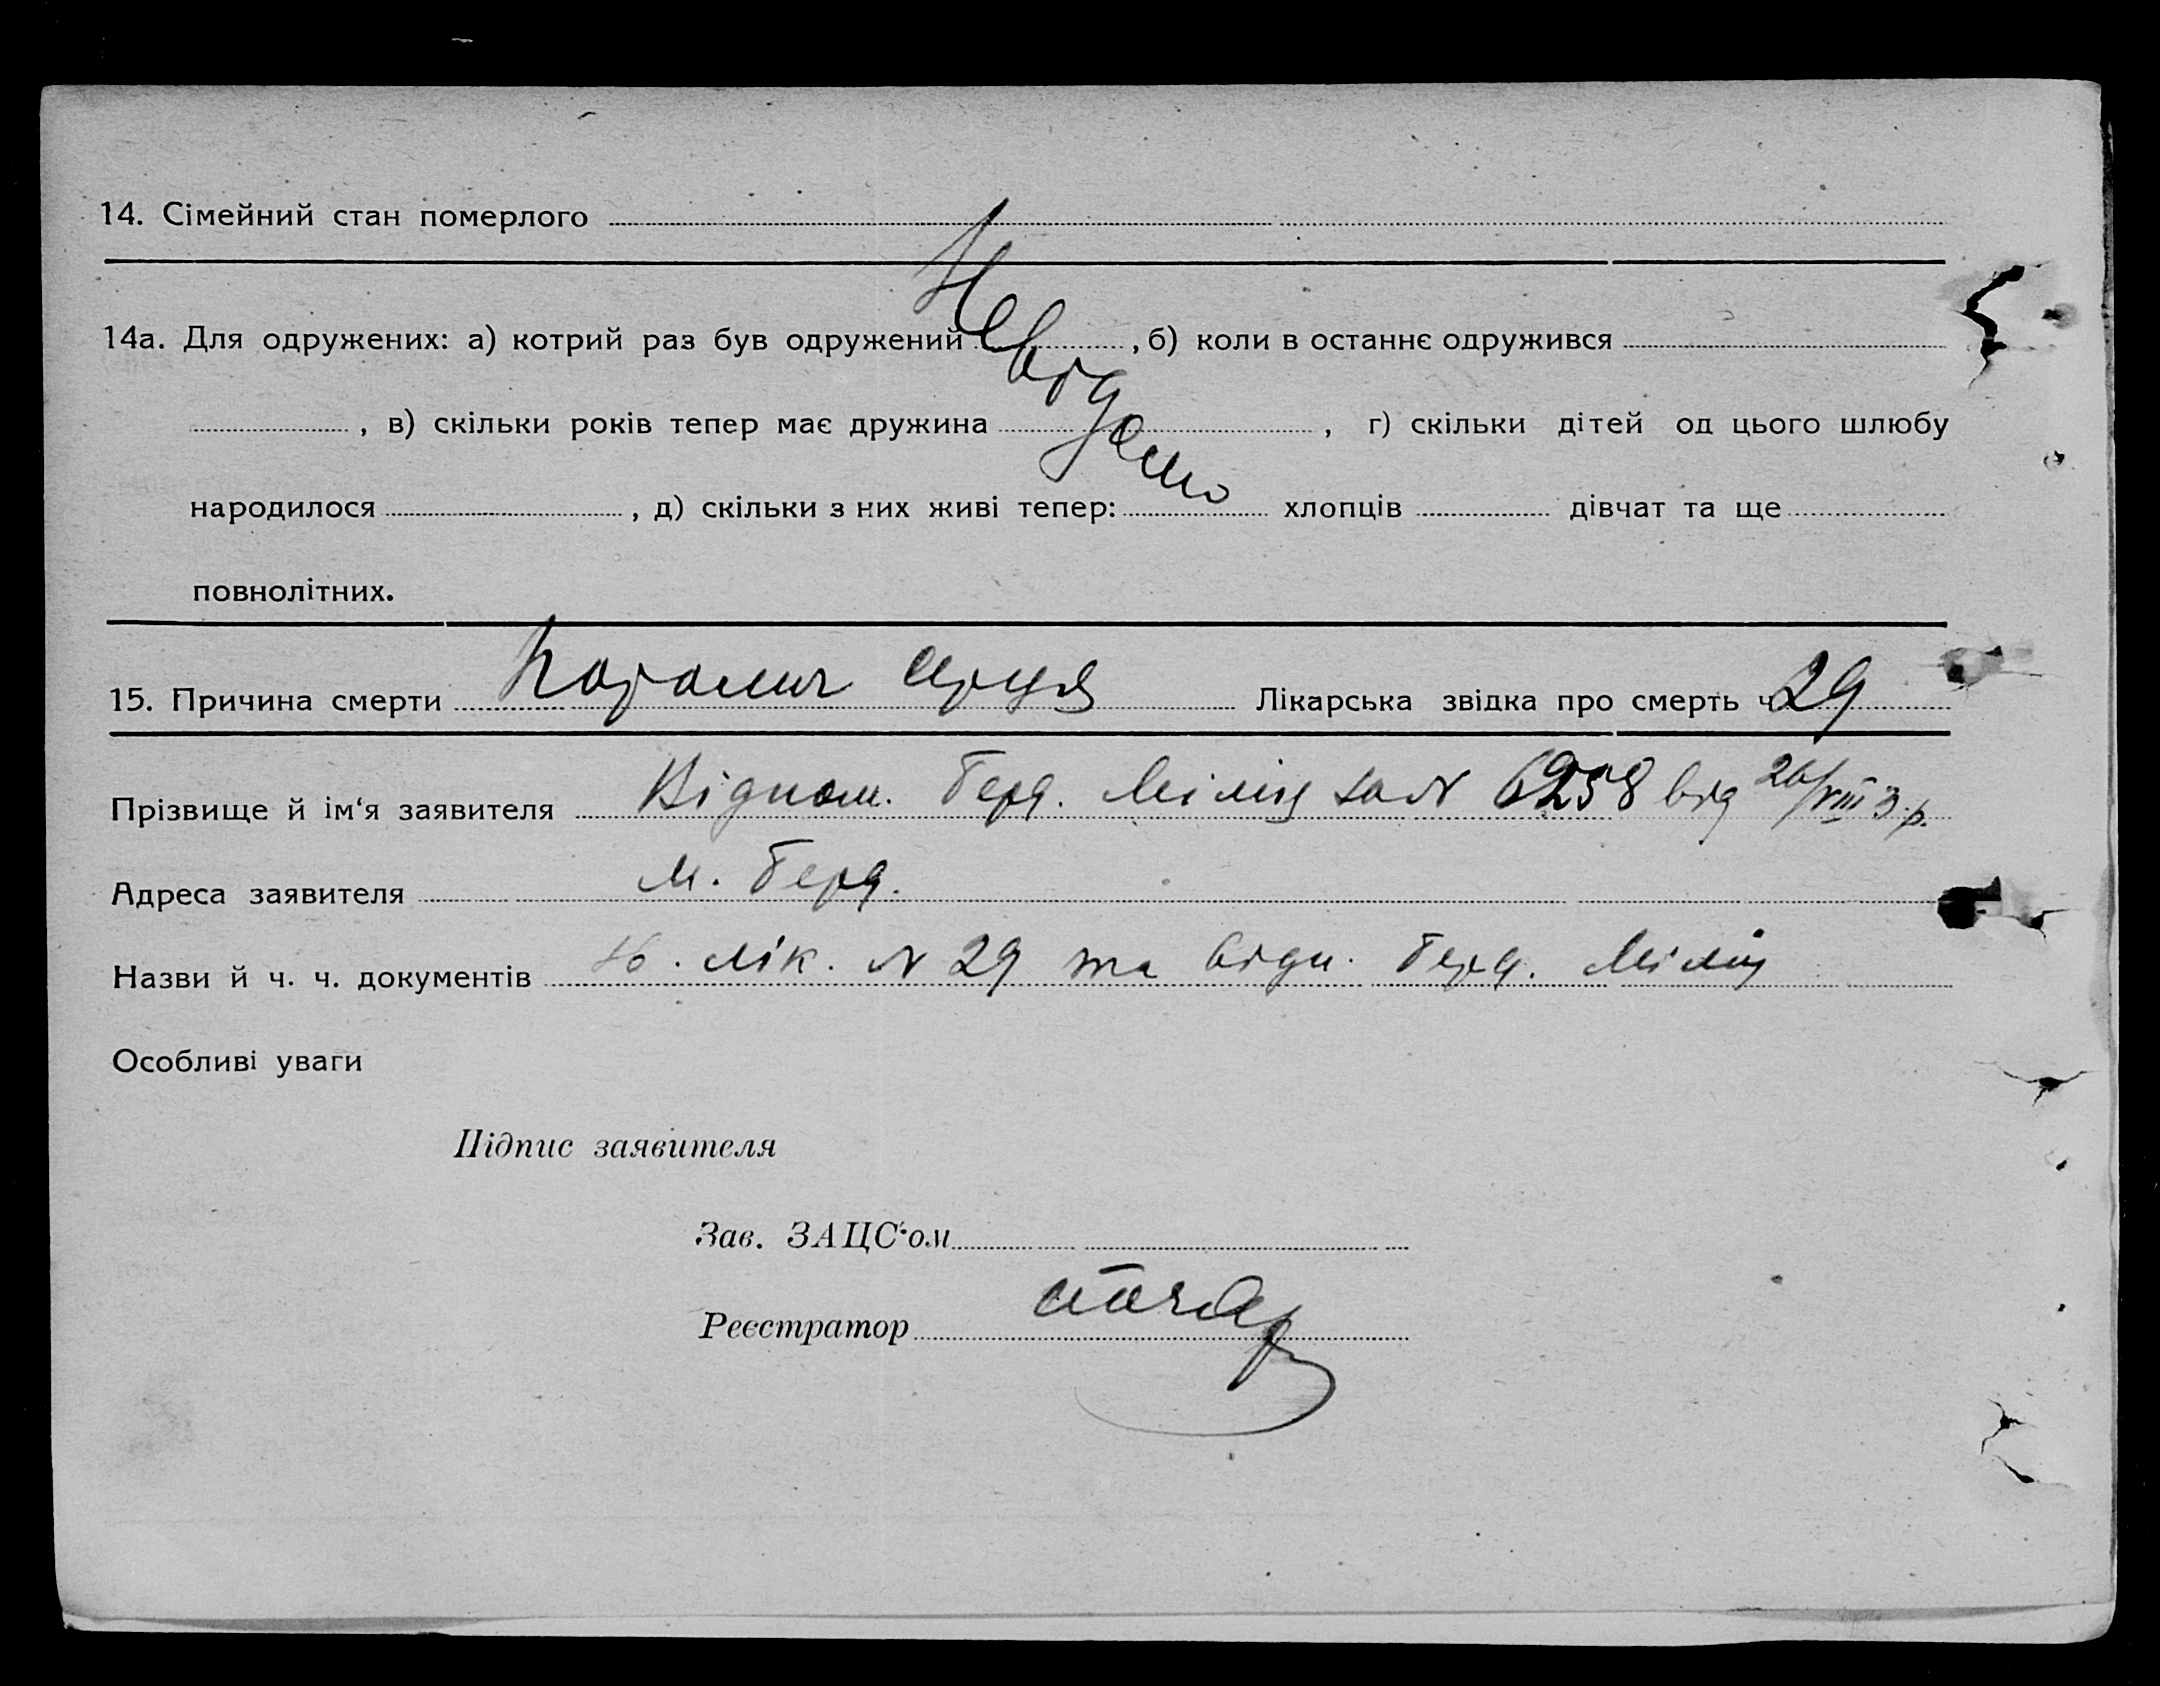 14. Сімейний стан померлого
Невідомо
14а. Для одружених: а) котрий раз був одружений , б) коли в останнє одружився
, в) скільки років тепер має дружина , г) скільки дітей од цього шлюбу
народилося , д) скільки з них живі тепер: хлопців дівчат та ще
повнолітних.
15. Причина смерти параліч серця Лікарська звідка про смерть ч. 29
Прізвище й ім'я заявителя Віднош. Берд. Міліц за № 6258 від 26/VIII 3 р.
Адреса заявителя м. Берд.
Назви й ч. ч. документів лік. № 29 та відн. Берд. Міліц
Особливі уваги
Підпис заявителя
Зав. ЗАЦС'ом
Реєстратор